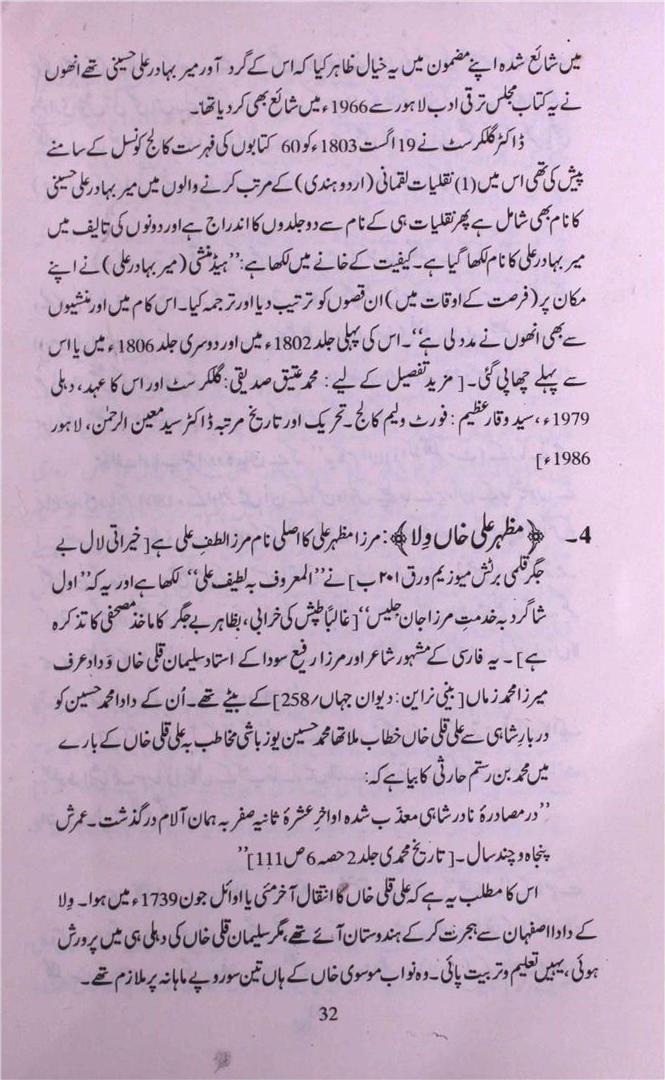 میں شائع شدہ اپنے مضمون میں یہ خیال ظاہر کیا کہ اس کے گرد آور میر بہادر علی حسینی تھے انھوں
نے یہ کتاب مجلس ترقی ادب لاہور سے 1966ء میں شائع بھی کردیا تھا۔
ڈاکٹر گلکرسٹ نے 19 اگست 1803ء کو 60 کتابوں کی فہرست کالج کونسل کے سامنے
پیش کی تھی اس میں (1) نقلیات لقمانی (اردو ہندی) کے مرتب کرنے والوں میں میر بہادر علی حسینی
کا نام بھی شامل ہے پھر نقلیات ہی کے نام سے دو جلدوں کا اندراج ہے اور دونوں کی تالیف میں
میر بہادر علی کا نام لکھا گیا ہے۔ کیفیت کے خانے میں لکھا ہے: ”ہیڈ منشی (میر بہادر علی) نے اپنے
مکان پر (فرصت کے اوقات میں) ان قصوں کو ترتیب دیا اور ترجمہ کیا۔ اس کام میں اور منشیوں
سے بھی انھوں نے مدد لی ہے“۔ اس کی پہلی جلد 1802ء میں اور دوسری جلد 1806ء میں یا اس
سے پہلے چھاپی گئی۔ [مزید تفصیل کے لیے: محمد عتیق صدیقی: گلکرسٹ اور اس کا عہد، دہلی
1979ء، سید وقار عظیم: فورٹ ولیم کالج۔ تحریک اور تاریخ مرتبہ ڈاکٹر سید معین الرحمٰن، لاہور
1986ء]
4۔ ﴿مظہر علی خاں وِلا﴾: مرزا مظہر علی کا اصلی نام مرزا لطف علی ہے [خیراتی لال بے
جگر قلمی برٹش میوزیم ورق ۲۰۱ ب] نے ”المعروف بہ لطیف علی“ لکھا ہے اور یہ کہ ”اول
شاگرد بہ خدمتِ مرزا جان جلیس“ [غالباً طپش کی خرابی، بظاہر بے جگر کا ماخذ مصحفی کا تذکرہ
ہے]۔ یہ فارسی کے مشہور شاعر اور مرزا رفیع سودا کے استاد سلیمان قلی خاں وَداد عرف
میرزا محمد زماں [بینی نراین: دیوان جہاں/258] کے بیٹے تھے۔ اُن کے دادا محمد حسین کو
دربار شاہی سے علی قلی خاں خطاب ملا تھا محمد حسین یوزباشی مخاطب بہ علی قلی خاں کے بارے
میں محمد بن رستم حارثی کا بیا ہے کہ:
”در مصادرۂ نادر شاہی معذب شدہ اواخرِ عشرۂ ثانیہ صفر بہ ہمان آلام درگذشت۔ عمرش
پنجاہ و چند سال۔ [تاریخ محمدی جلد 2 حصہ 6 ص 111]”
اس کا مطلب یہ ہے کہ علی قلی خاں کا انتقال آخر مئی یا اوائل جون 1739ء میں ہوا۔ وِلا
کے دادا اصفہان سے ہجرت کرکے ہندوستان آئے تھے، مگر سلیمان قلی خاں کی دہلی ہی میں پرورش
ہوئی، یہیں تعلیم و تربیت پائی۔ وہ نواب موسوی خاں کے ہاں تین سو روپے ماہانہ پر ملازم تھے۔
32